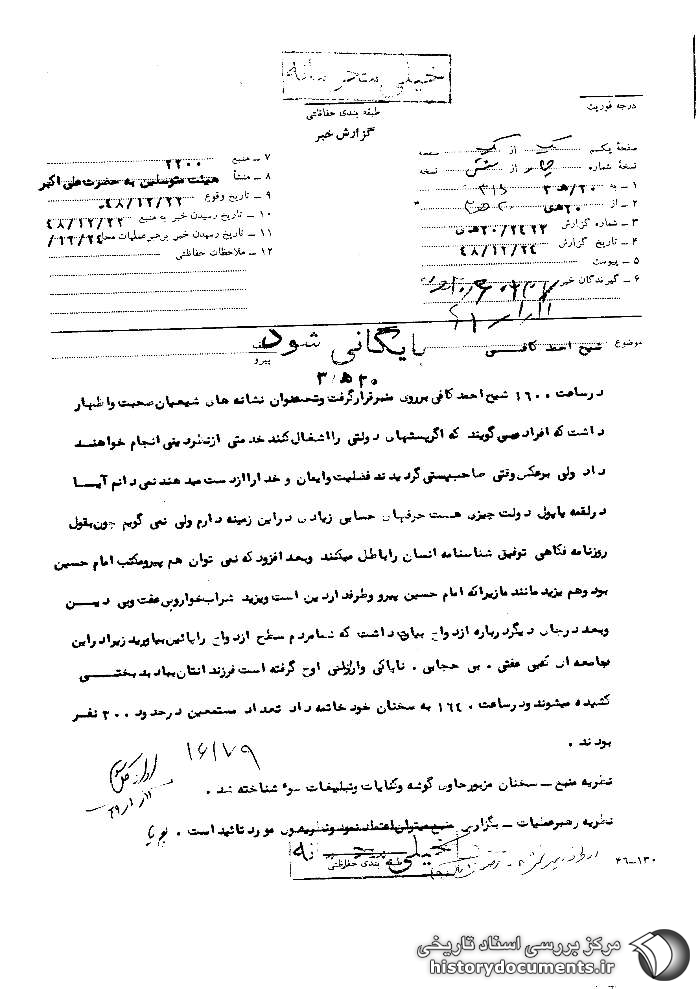 خیلی محرمانه
طبقه بندی حفاظتی
گزارش خبر
درجه فوریت
صفحهٔ یکم از صفحه
نسخهٔ شماره از شش نسخه
۱ - به ۲۰/هـ ۳ ۳۱۵
۲ - از ۲۰هـ ی
۳ - شماره گزارش ۲۰/۲۴۲۲هـ ی
۴ - تاریخ گزارش ۴۸/۱۲/۲۴
۵ - پیوست
۶ - گیرندگان خبر
۷ - منبع ۲۲۰۰
۸ - منشأ هیئت متوسلین به حضرت علی اکبر
۹ - تاریخ وقوع ۴۸/۱۲/۲۲
۱۰ - تاریخ رسیدن خبر به منبع ۴۸/۱۲/۲۲
۱۱ - تاریخ رسیدن خبر برهبر عملیات محل
۱۲ - ملاحظات حفاظتی
موضوع شیخ احمد کافی
بایگانی شود
پیرو
۲۰هـ ۳
در ساعت ۱۶۰۰ شیخ احمد کافی بر روی منبر قرار گرفت و تحت عنوان نشانه های شیعیان صحبت و اظهار
داشت که افراد می گویند که اگر پستهای دولتی را اشغال کنند خدمتی از نظر دینی انجام خواهند
داد ولی برعکس وقتی صاحب پستی گردیدند فضلیت و ایمان و خدا را از دست میدهند نمی دانم آیا
در لقمه یا پول دولت چیزی هست حرفهای حسابی زیادی در این زمینه دارم ولی نمی گویم چون بقول
روزنامه فکاهی توفیق شناسنامه انسان را باطل میکنند وبعد افزود که نمی توان هم پیرو مکتب امام حسین
بود وهم یزید مانند ما زیرا که امام حسین پیرو وطرفدار دین است ویزید شراب خوار وبی عفت وبی دین
وبعد در جای دیگر درباره ازدواج بیان داشت که شما مردم سطح ازدواج را پائین بیاورید زیرا در این
جامعه ای که بی عفتی . بی حجابی . ناپاکی واراذلی اوج گرفته است فرزندانتان ببار بدبختی
کشیده میشوند ودر ساعت ۱۶۴۰ به سخنان خود خاتمه داد تعداد مستمعین در حدود ۳۰۰ نفر
بودند .
۱۶/۱۷۹
نظریه منبع – سخنان مزبور حاوی گوشه وکنایات وتبلیغات سوء شناخته شد .
نظریه رهبر عملیات – بگزارش منبع میتوان اعتماد نمود ونظریه وی مورد تائید است .
خیلی محرمانه
طبقه بندی حفاظتی
۴۶-۱۳۰
مرکز بررسی اسناد تاریخی
historydocuments.ir